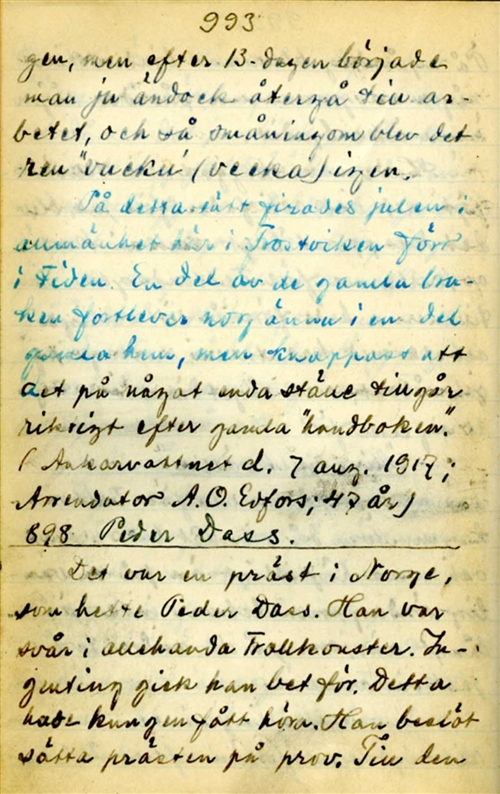 993
gen, men efter 13-dagen började
man ju ändock återgå till ar-
betet, och så småningom blev det
ren "vucku" (vecka) igen.
På detta sätt firades julen i
allmänhet här i Frostviken förr
i tiden. En del av de gamla bru-
ken fortlever nog ännu i en del
gamla hem, men knappast att
det på något enda ställe tillgår
riktigt efter gamla "handboken".
(Ankarvattnet d. 7 aug. 1917;
Arrendator A.O. Edfors; 47 år)
898 Peder Dass.
Det var en präst i Norge,
som hette Peder Dass. Han var
svår i allehanda Trollkonster. In-
genting gick han bet för. Detta
hade kungen fått höra. Han beslöt
sätta prästen på prov. Till den